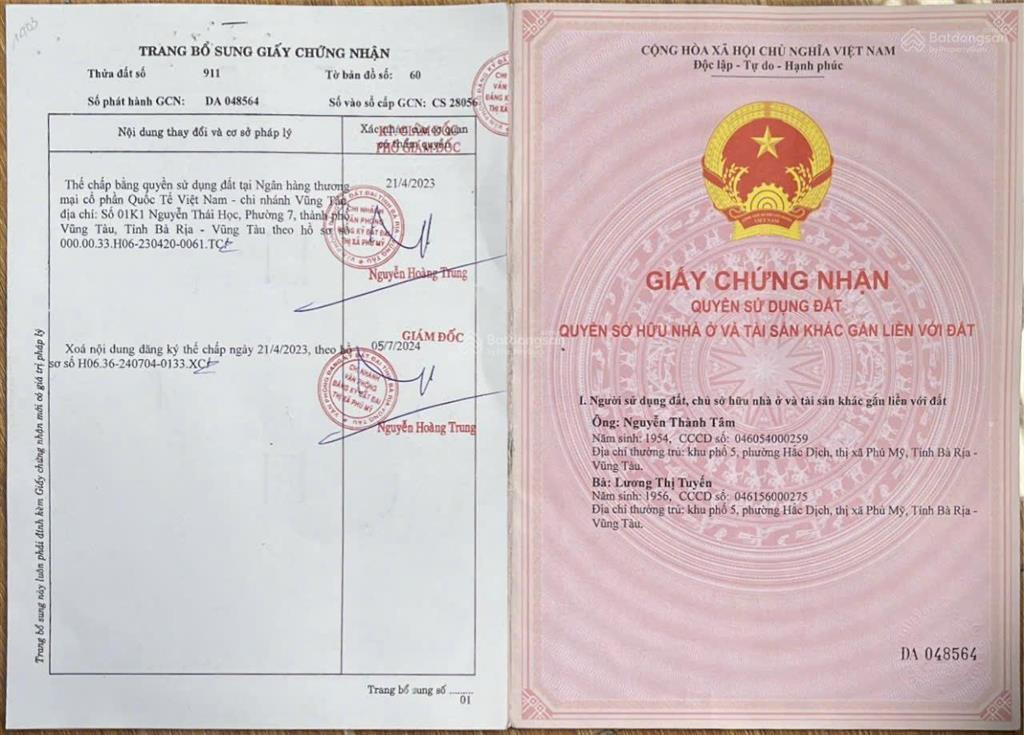 1703
TRANG BỔ SUNG GIẤY CHỨNG NHẬN
Thửa đất số 911 Tờ bản đồ số: 60
Số phát hành GCN: DA 048564 Số vào sổ cấp GCN: CS 28056
Nội dung thay đổi và cơ sở pháp lý
Xác nhận của cơ quan
có thẩm quyền
KT. GIÁM ĐỐC
PHÓ GIÁM ĐỐC
Thế chấp bằng quyền sử dụng đất tại Ngân hàng thương
mại cổ phần Quốc Tế Việt Nam - chi nhánh Vũng Tàu,
địa chỉ: Số 01K1 Nguyễn Thái Học, Phường 7, thành phố
Vũng Tàu, Tỉnh Bà Rịa - Vũng Tàu theo hồ sơ số
000.00.33.H06-230420-0061.TC
21/4/2023
CHI NHÁNH
VĂN PHÒNG
ĐĂNG KÝ ĐẤT ĐAI
THỊ XÃ PHÚ MỸ
Nguyễn Hoàng Trung
Xoá nội dung đăng ký thế chấp ngày 21/4/2023, theo hồ
sơ số H06.36-240704-0133.XC
GIÁM ĐỐC
05/7/2024
CHI NHÁNH
VĂN PHÒNG
ĐĂNG KÝ ĐẤT ĐAI
THỊ XÃ PHÚ MỸ
Nguyễn Hoàng Trung
Trang bổ sung này luôn phải đính kèm Giấy chứng nhận mới có giá trị pháp lý
Trang bổ sung số ........
01
CỘNG HÒA XÃ HỘI CHỦ NGHĨA VIỆT NAM
Độc lập - Tự do - Hạnh phúc
Batdongsan
by PropertyGuru
GIẤY CHỨNG NHẬN
QUYỀN SỬ DỤNG ĐẤT
QUYỀN SỞ HỮU NHÀ Ở VÀ TÀI SẢN KHÁC GẮN LIỀN VỚI ĐẤT
I. Người sử dụng đất, chủ sở hữu nhà ở và tài sản khác gắn liền với đất
Ông: Nguyễn Thành Tâm
Năm sinh: 1954, CCCD số: 046054000259
Địa chỉ thường trú: khu phố 5, phường Hắc Dịch, thị xã Phú Mỹ, Tỉnh Bà Rịa -
Vũng Tàu.
Bà: Lương Thị Tuyến
Năm sinh: 1956, CCCD số: 046156000275
Địa chỉ thường trú: khu phố 5, phường Hắc Dịch, thị xã Phú Mỹ, Tỉnh Bà Rịa -
Vũng Tàu.
DA 048564